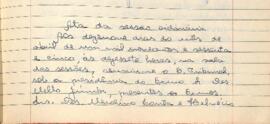 Ata da sessão ordinária
Aos dezenove dias do mês de
abril de um mil novecentos e sessenta
e cinco, às dezessete horas, na sala
das sessões, o E. Tribunal,
sob a presidência do Exmo. Sr. Des.
Mello Júnior, presentes os Exmos.
Srs. Des. e